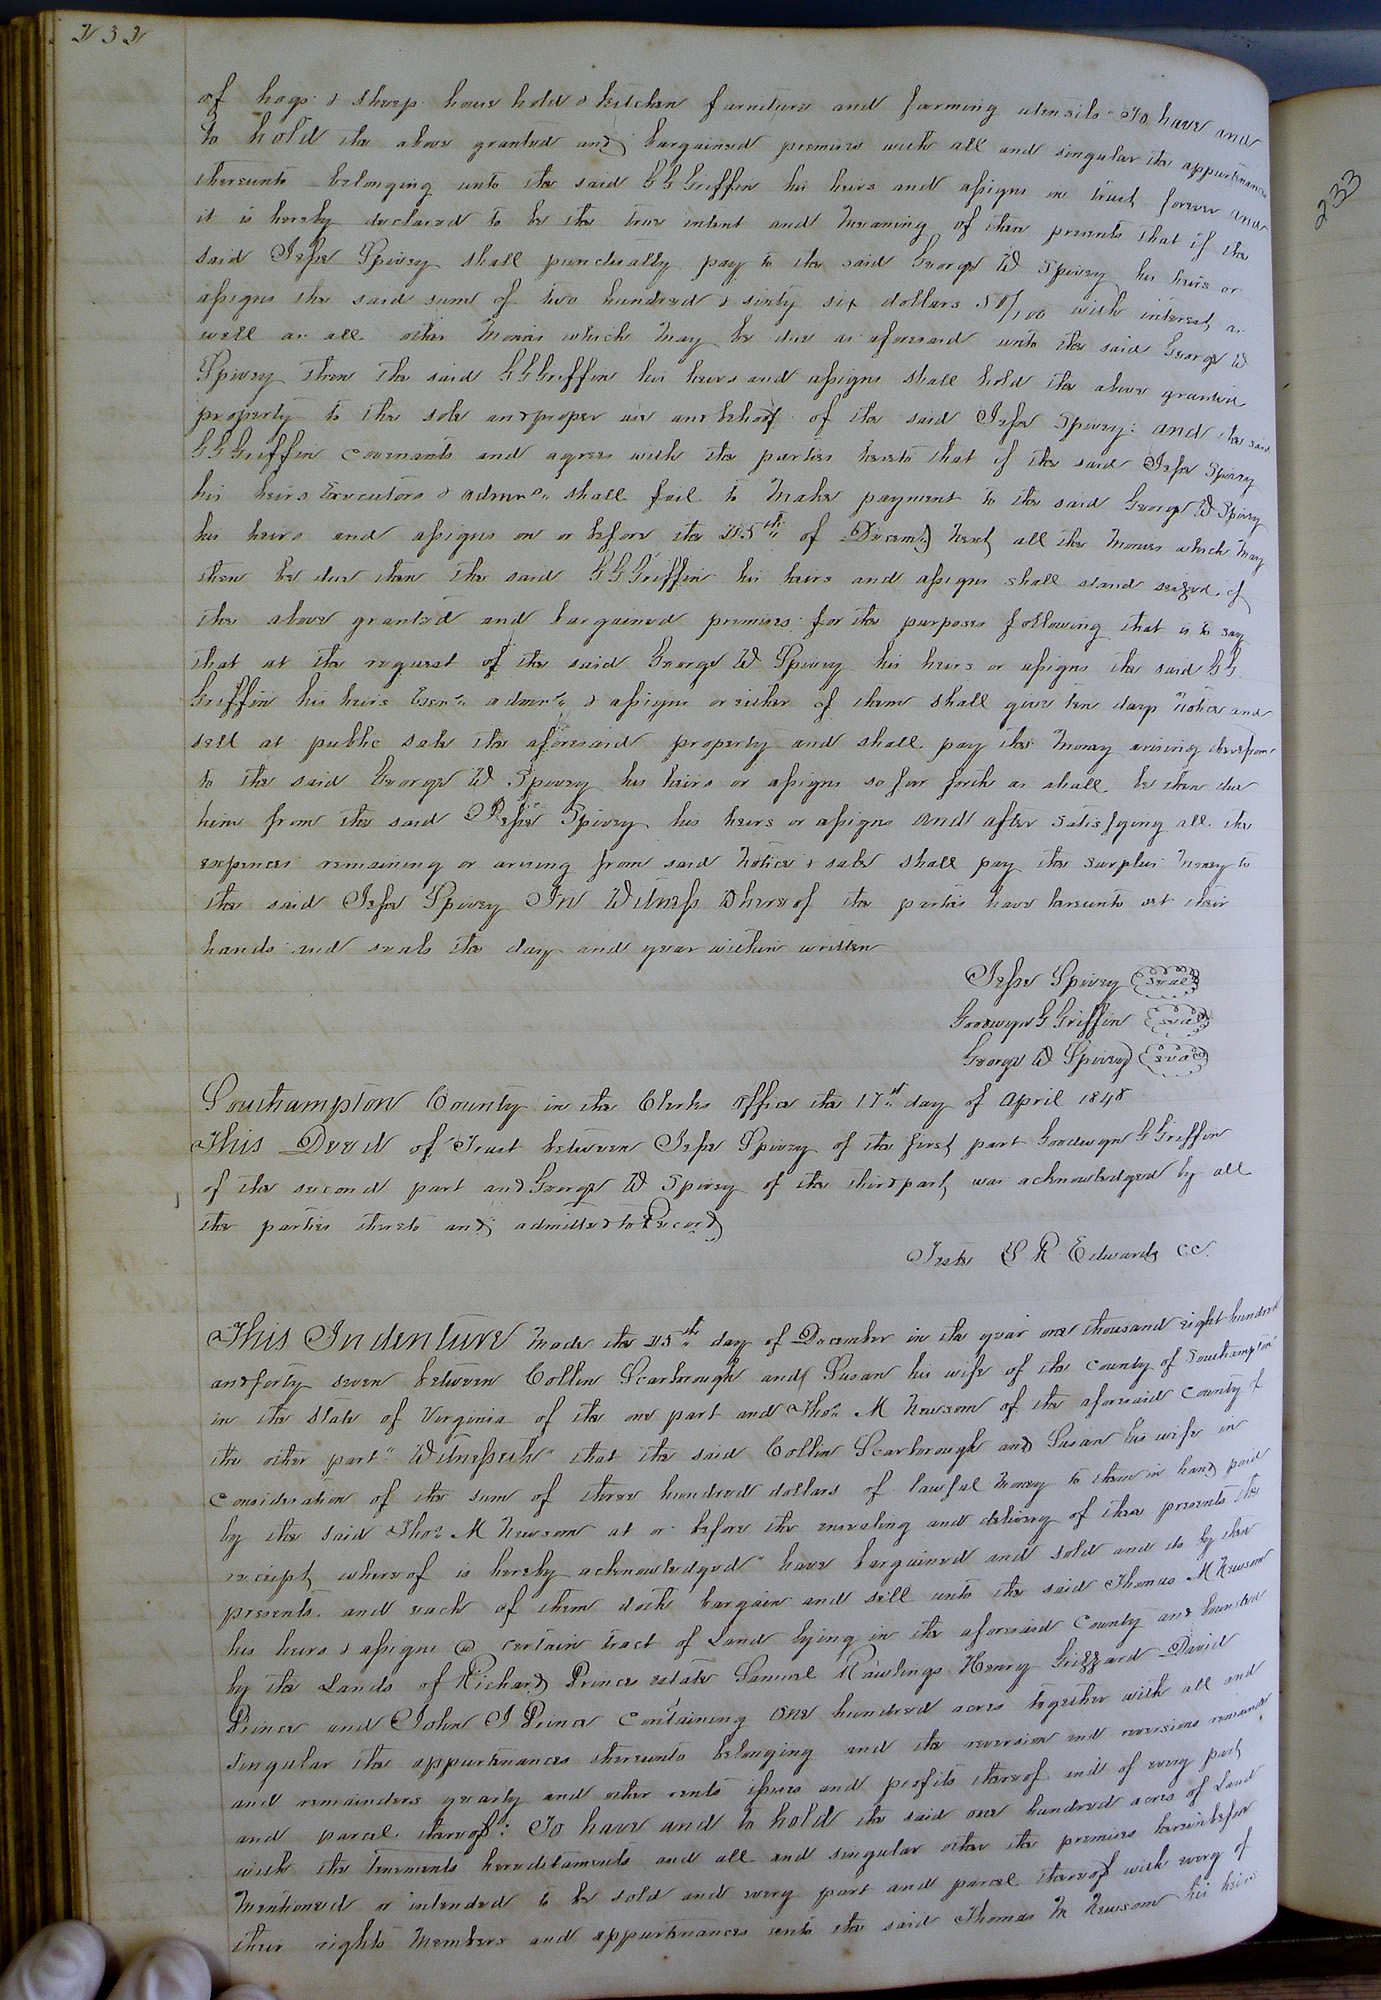 232
of hogs & sheep house hold & kitchen furniture and farming utensils "To have and
to hold the above granted and bargained premises with all and singular the appurtenances
thereunto belonging unto the said G G Griffin his heirs and assigns in trust forever and
it is hereby declared to be the true intent and meaning of these presents that if the
said Jesse Spivey shall punctually pay to the said George W Spivey his heirs or
assigns the said sum of two hundred & sixty six dollars 58/100 with interest as
well as all other monies which may be due as aforesaid unto the said George W
Spivey then the said G G Griffin his heirs and assigns shall hold the above granted
property to the sole and proper use and behoof of the said Jesse Spivey: and the said
G G Griffin covenants and agrees with the parties hereto that if the said Jesse Spivey
his heirs Executors & admrs. shall fail to make payment to the said George W Spivey
his heirs and assigns on or before the 25th of Decemr next all the monies which may
then be due then the said G G Griffin his heirs and assigns shall stand seized of
the above granted and bargained premises for the purposes following that is to say
that at the request of the said George W Spivey his heirs or assigns the said G G
Griffin his heirs Exors. admrs. & assigns or either of them shall give ten days notice and
sell at public sale the aforesaid property and shall pay the money arising therefrom
to the said George W Spivey his heirs or assigns so far forth as shall be then due
him from the said Jesse Spivey his heirs or assigns and after satisfying all the
expences remaining or arising from said notice & sale shall pay the surplus money to
the said Jesse Spivey In Witness Whereof the parties have hereunto set their
hands and seals the day and year within written
Jesse Spivey seal
Goodwyn G Griffin seal
George W Spivey seal
Southampton County in the Clerks Office the 17th day of April 1848
This Deed of Trust between Jesse Spivey of the first part Goodwyn G Griffin
of the second part and George W Spivey of the third part, was acknowledged by all
the parties thereto and admitted to Record
Teste L R Edwards CC.
This Indenture made the 25th day of December in the year one thousand eight hundred
and forty seven between Collin Scarborough and Susan his wife of the county of Southampton
in the State of Virginia of the one part and Thos. M Newsom of the aforesaid County of
the other part "Witnesseth" that the said Collin Scarborough and Susan his wife in
consideration of the sum of three hundred dollars of lawful money to them in hand paid
by the said Thos. M Newsom at or before the ensealing and delivery of these presents the
receipt whereof is hereby acknowledged" have bargained and sold and do by these
presents and each of them doth bargain and sell unto the said Thomas M Newsom
his heirs & assigns a certain tract of Land lying in the aforesaid County and bounded
by the Lands of Richard Princes estate Samuel Rawlings Henry Grizzard David
Prince and John J Prince containing one hundred acres together with all and
singular the appurtenances thereunto belonging and the reversion and reversions remainder
and remainders yearly and other rents issues and profits thereof and of every part
and parcel thereof: To have and to hold the said one hundred acres of Land
with the tenements hereditaments and all and singular other the premises hereinbefore
mentioned or intended to be sold and every part and parcel thereof with every of
their rights members and appurtenances unto the said Thomas M Newsom his heirs
233